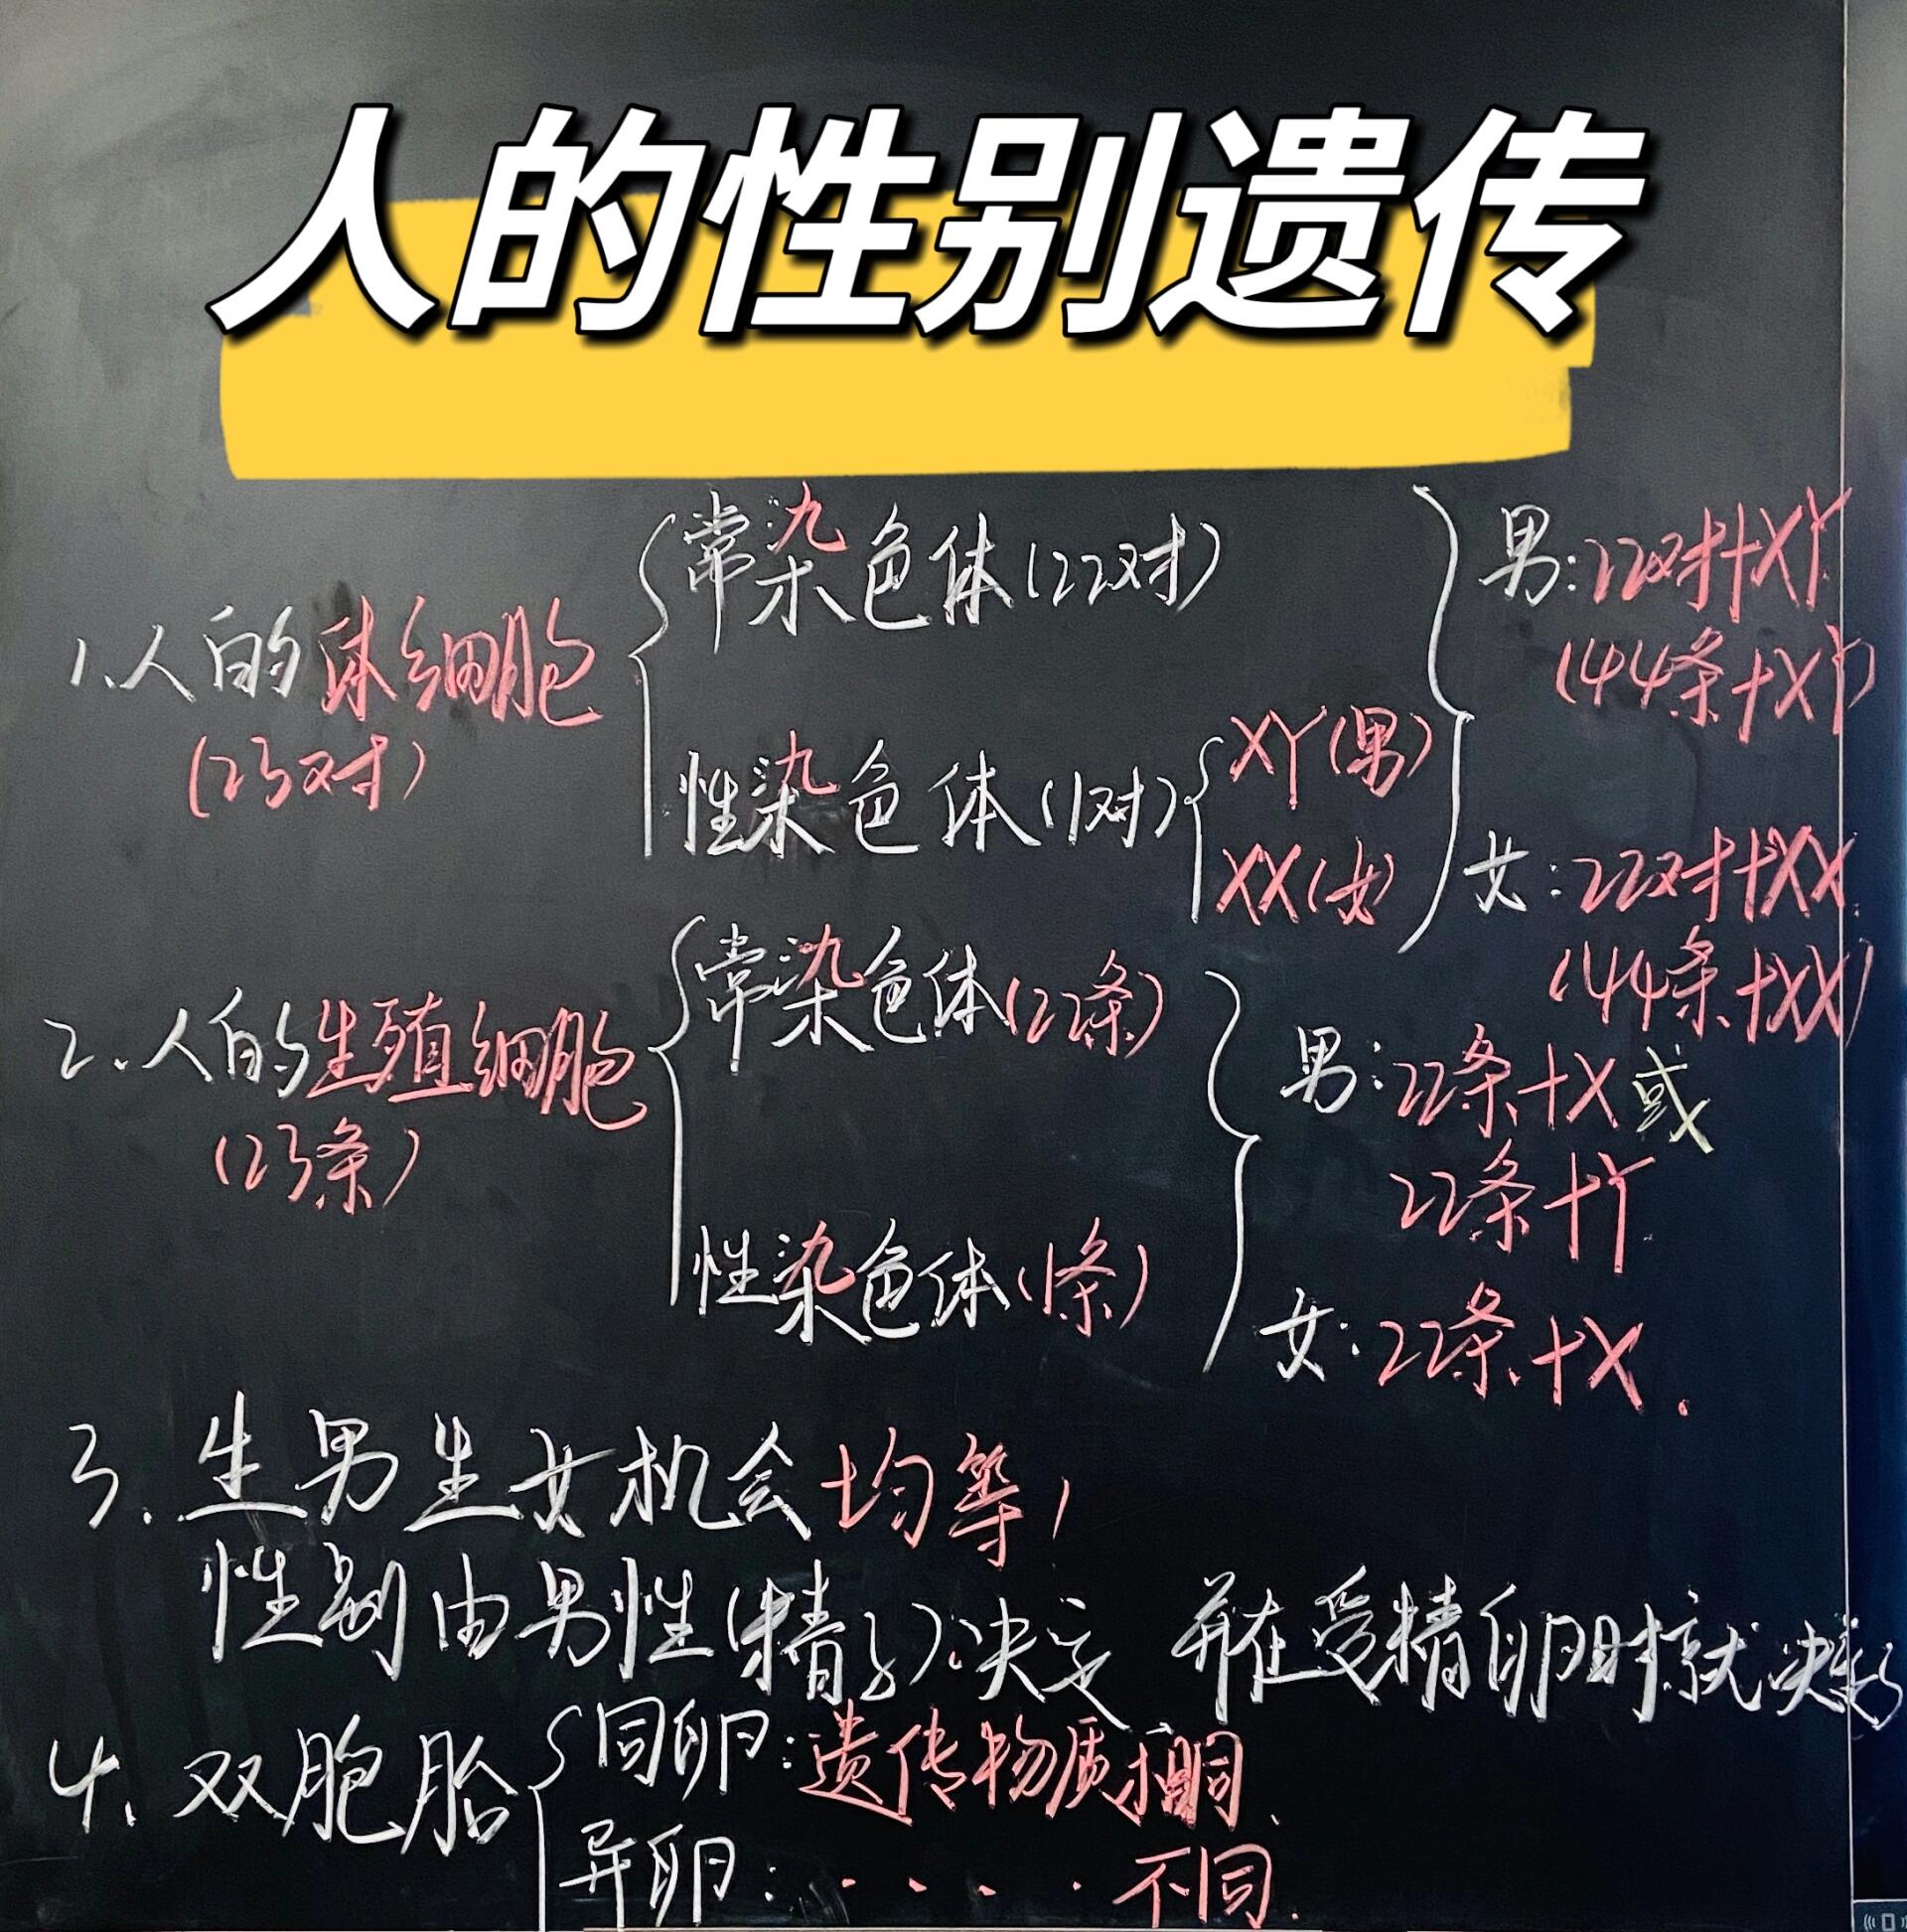 人的性别遗传
常染色体(22对)
男:22对+XY
(44条+XY)
1.人的体细胞
(23对)
性染色体(1对)
XY(男)
XX(女)
女:22对+XX
(44条+XX)
常染色体(22条)
2.人的生殖细胞
(23条)
男:22条+X或
22条+Y
性染色体(1条)
女:22条+X.
3.生男生女机会均等,
性别由男性(精子)决定 并在受精卵时就决定
4.双胞胎
同卵:遗传物质相同.
异卵:····不同.